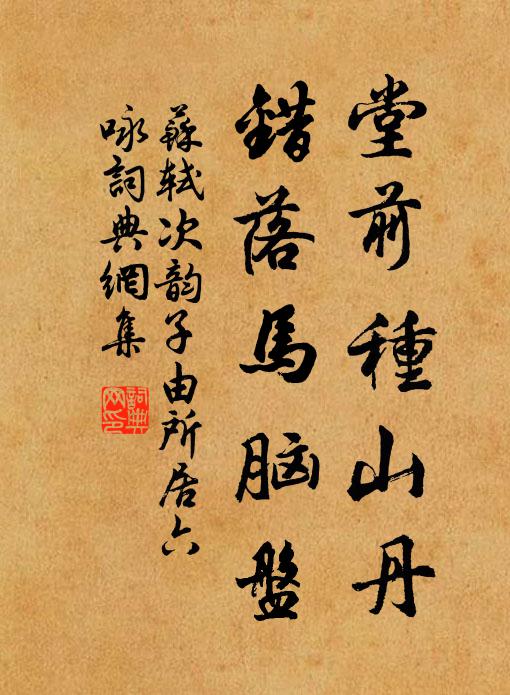 堂前種山丹
錯落馬脑盤
蘇軾次韵子由所居六
咏詞典網集
詞典網印